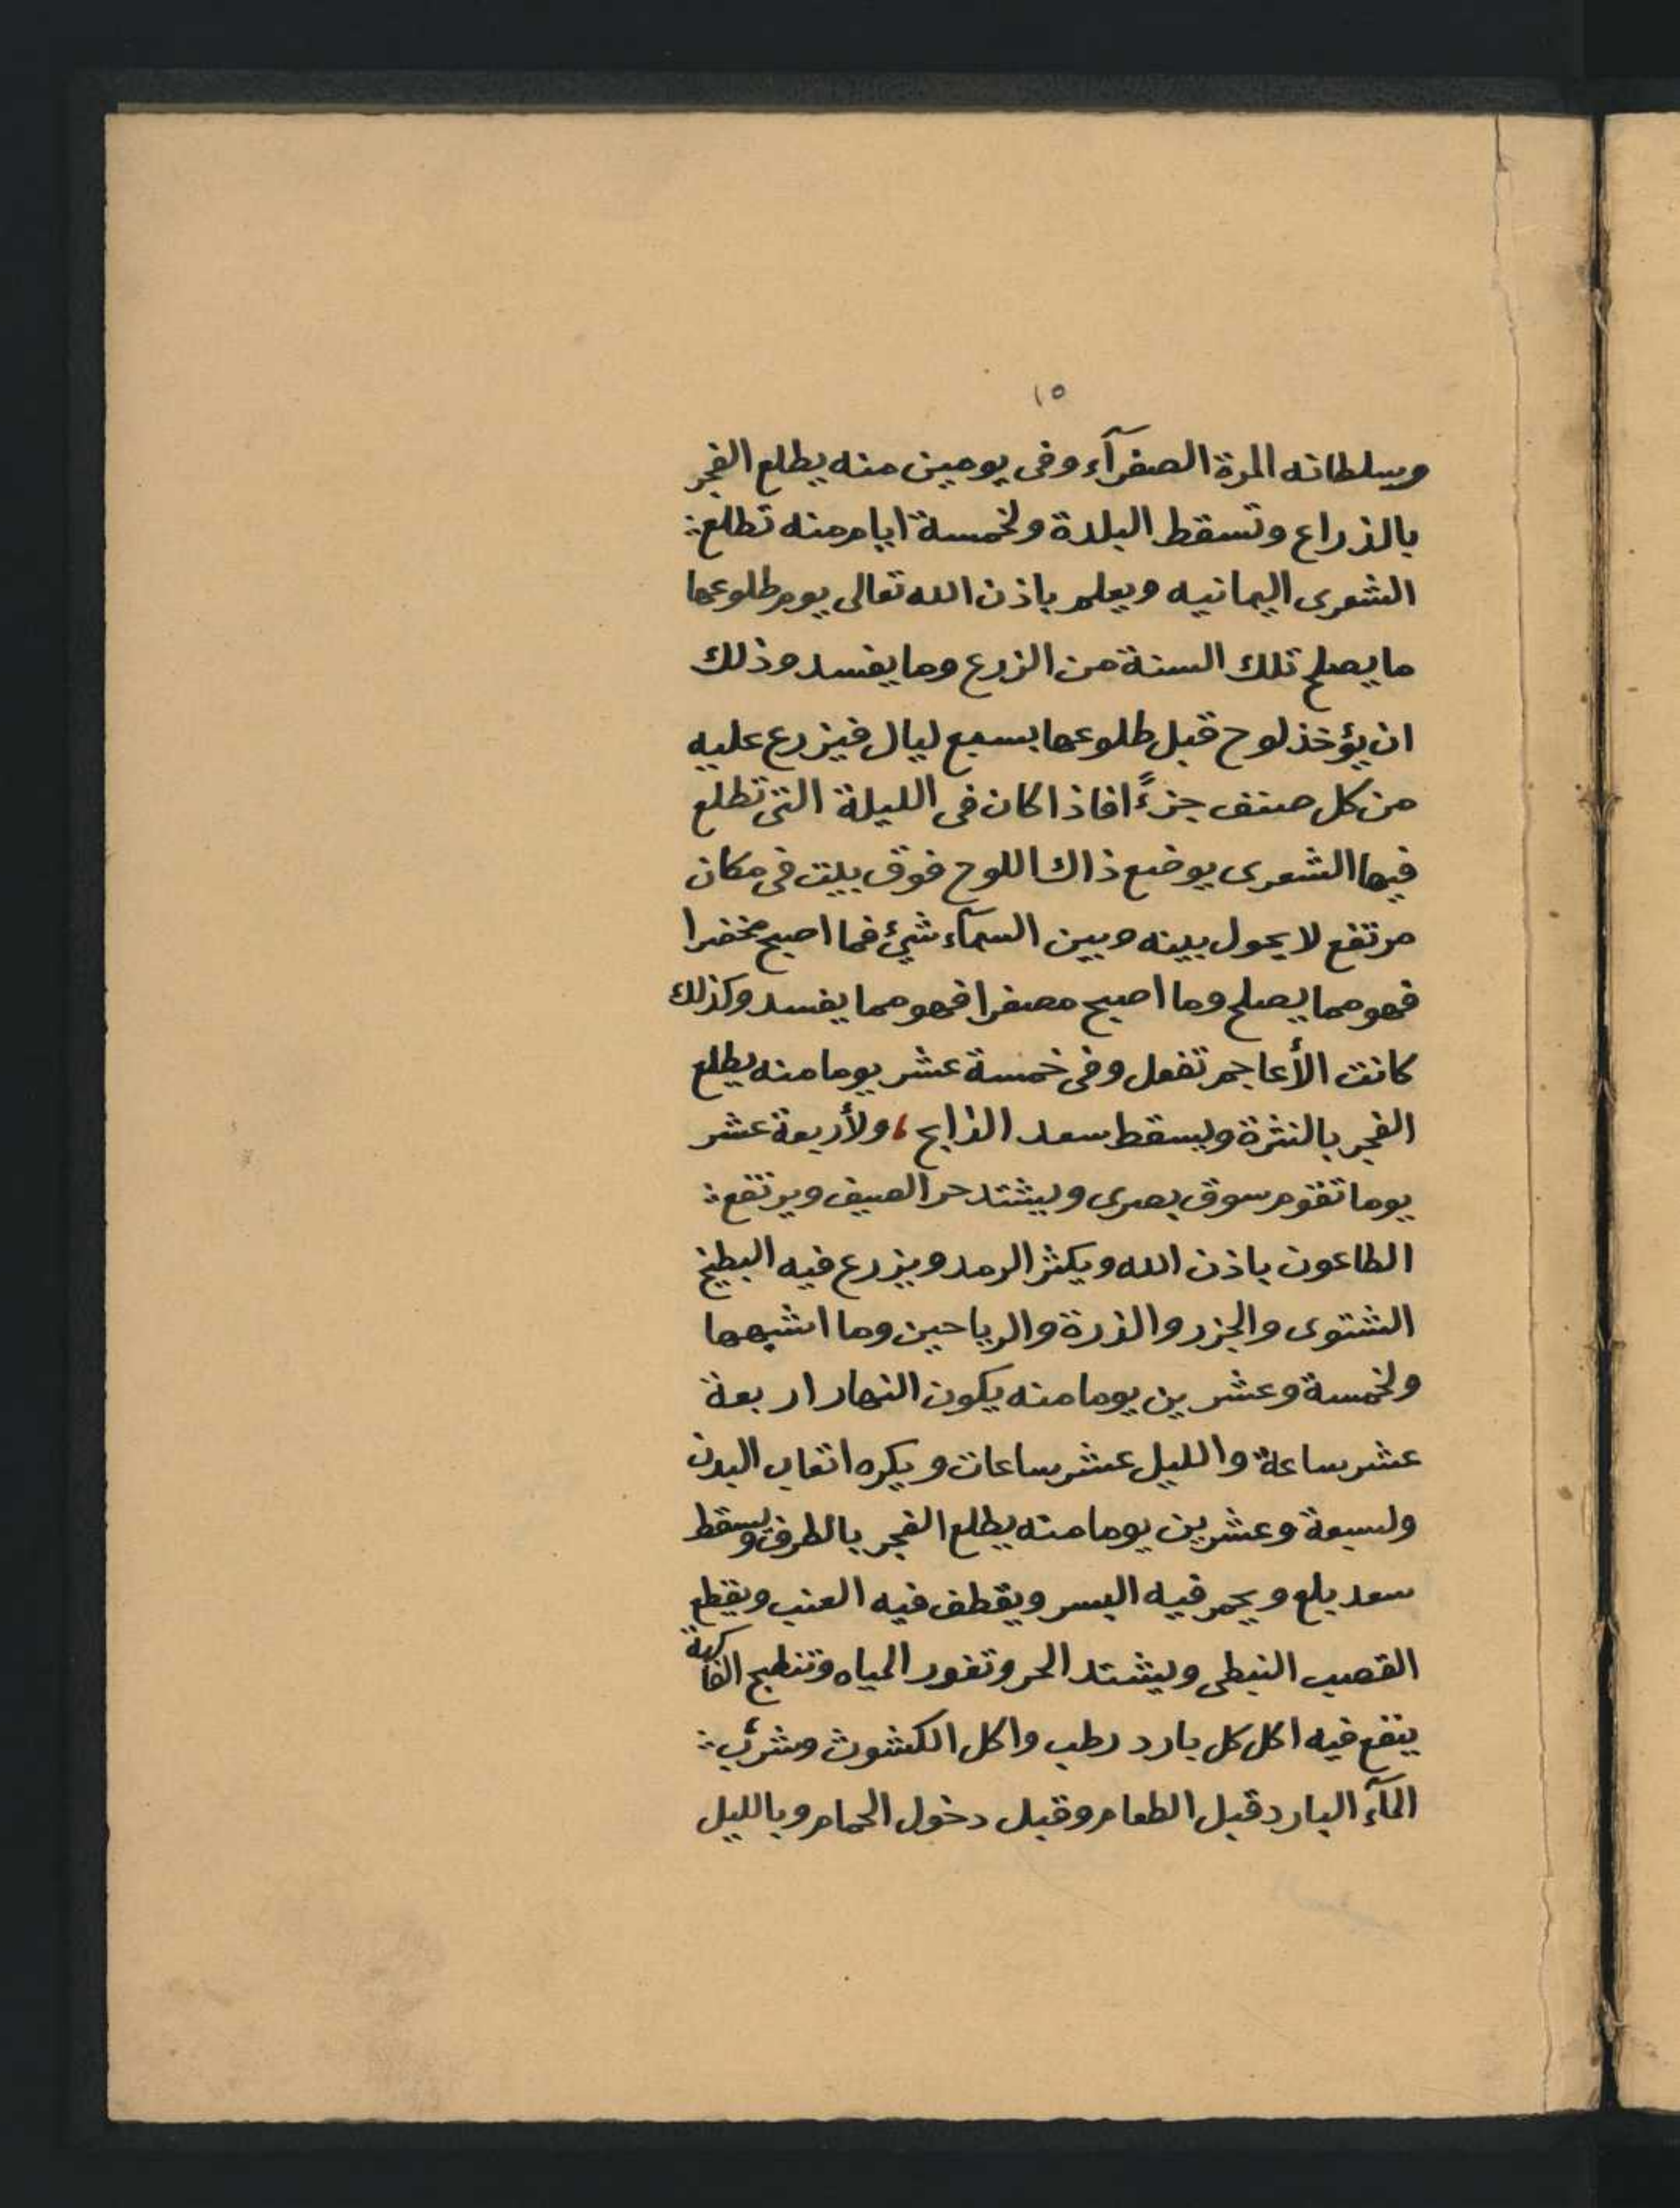 ١٥
وسلطانه المرة الصفرآء وفى يومين منه يطلع الفجر
بالذراع وتسقط البلدة ولخمسة ايام منه تطلع ؞
الشعرى اليمانيه ويعلم باذن الله تعالى يوم طلوعها
ما يصلح تلك السنة من الزرع وما يفسد وذلك
ان يؤخذ لوح قبل طلوعها بسبع ليال فيزرع عليه
من كل صنف جزءً افاذا كان فى الليلة التى تطلع
فيها الشعرى يوضع ذاك اللوح فوق بيت فى مكان
مرتفع لا يحول بينه وبين السمآء شئ فما اصبح مخضرا
فهو مما يصلح وما اصبح مصفرا فهو مما يفسد وكذلك
كانت الأعاجم تفعل وفى خمسة عشر يوما منه يطلع
الفجر بالنثرة ويسقط سعد الذابح ، ولأربعة عشر
يوما تقوم سوق بصرى ويشتد حر الصيف ويرتفع ؞
الطاعون باذن الله ويكثر الرمد ويزرع فيه البطيخ
الشتوى والجزر والذرة والرياحين وما اشبهها
ولخمسة وعشرين يوما منه يكون النهار اربعة
عشر ساعة والليل عشر ساعات ويكره اتعاب البدن
ولسبعة وعشرين يوما منه يطلع الفجر بالطرف ويسقط
سعد بلع ويحمر فيه البسر ويقطف فيه العنب ويقطع
القصب النبطى ويشتد الحر وتغور المياه وتنطبج الفاكهة
ينفع فيه اكل كل بارد رطب واكل الكشوث وشرب ؞
المآء البارد قبل الطعام وقبل دخول الحمام وبالليل